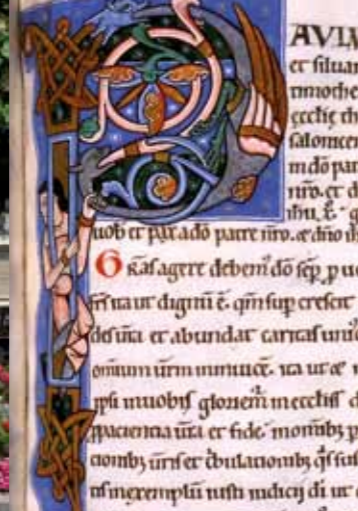 AVLV
et siluan
timothe
ecclie th
salonicen
in dō par
nrō. et d
ihu x̄. g
uob et pax a dō patre nrō. et dn̄o ih
Gras agere debem dō sēp p uo
frs ita ut dignū ē. qm̄ sup crescit
des ur̄a et abundat caritas uniu
omnium ur̄m inuinuicē. ita ut et n
ipsi in uobis gloriem in ecclis d
paciencia ur̄a et fide. i
cionib; ur̄is et tbulationib; qs sus
tis in exemplū iusti iudicii di ut d